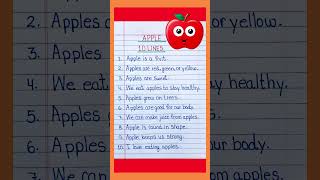 APPLE
10 LINES
1. Apple is a fruit.
2. Apples are red, green, or yellow.
3. Apples are sweet.
4. We eat apples to stay healthy.
5. Apples grow on trees.
6. Apples are good for our body.
7. We can make juice from apples.
8. Apple is round in shape.
9. Apple keeps us strong.
10. I love eating apples.